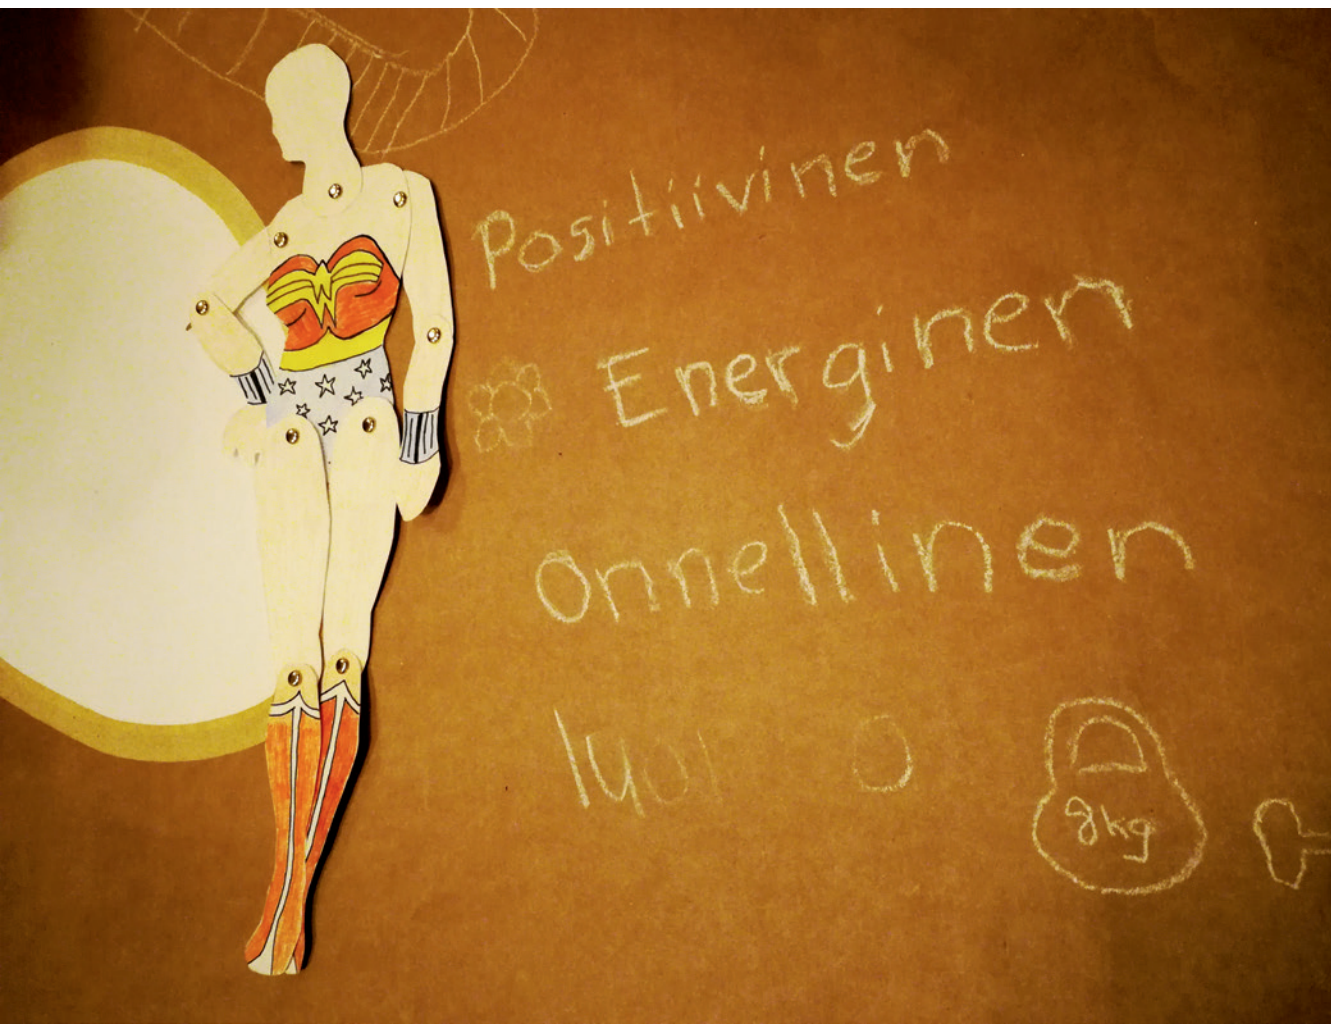 Positiivinen
Energinen
Onnellinen
8kg